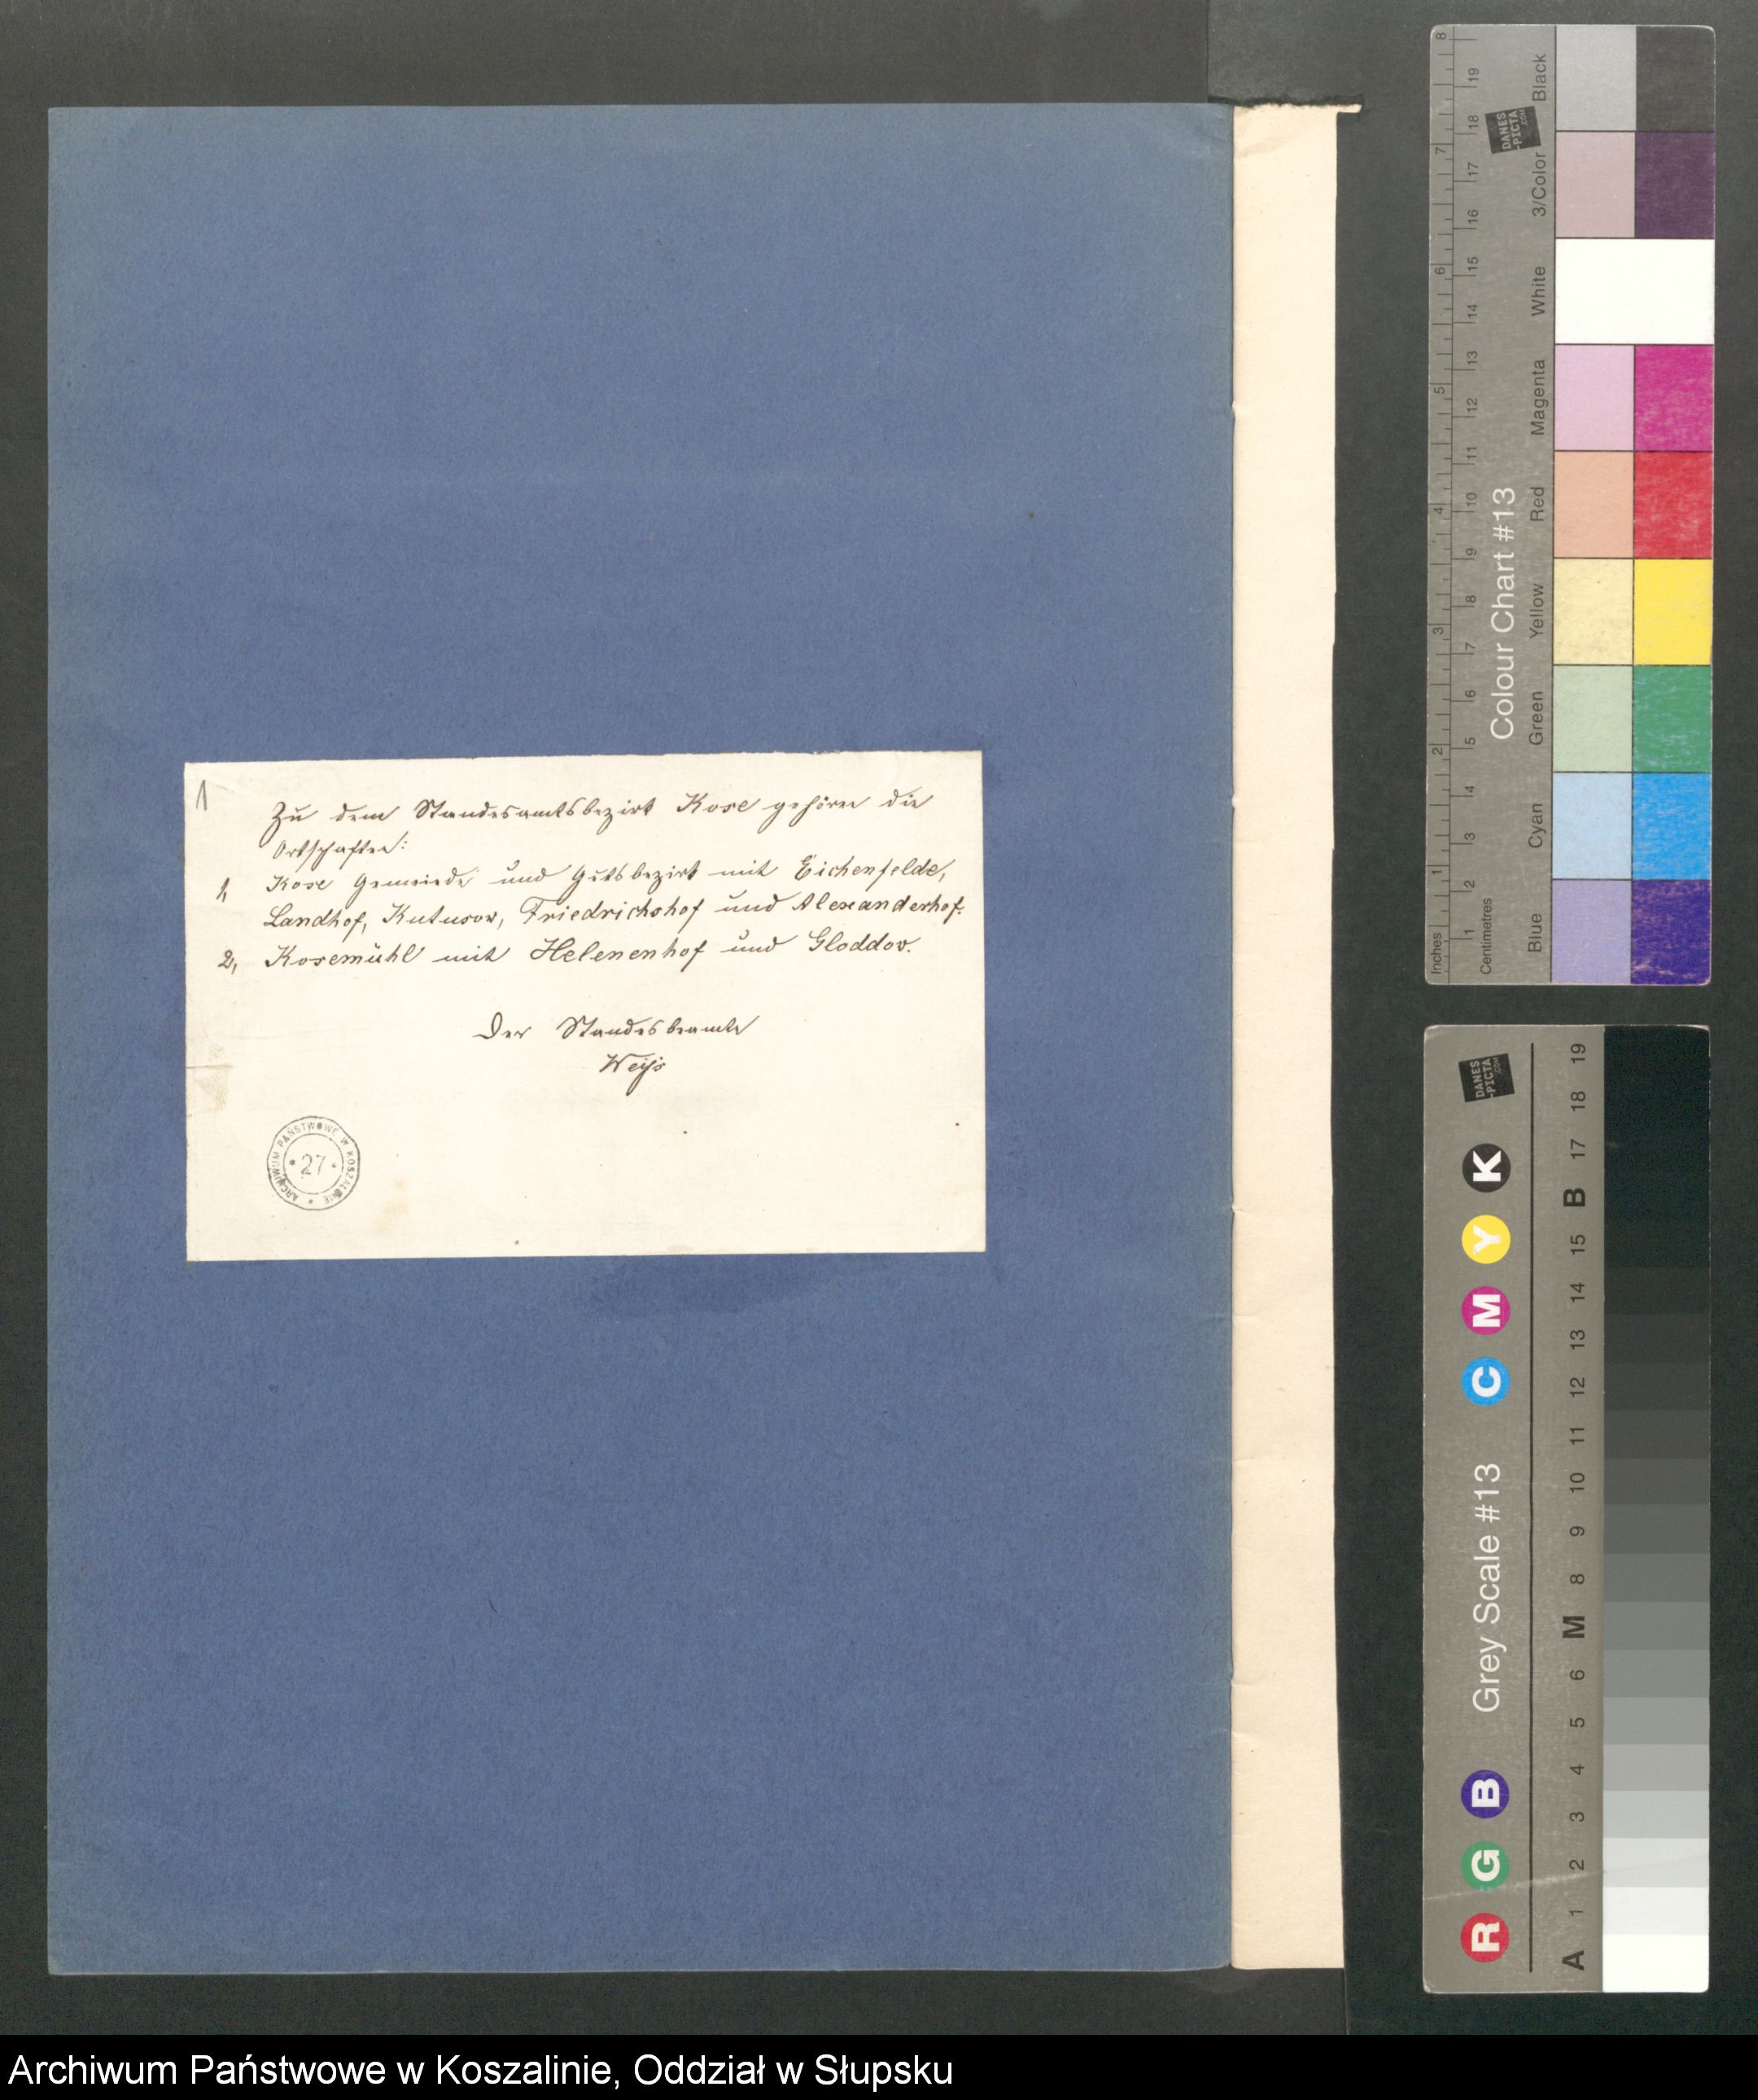 1
Zu dem Standesamtsbezirk Kose gehören die
Ortschaften:
1, Kose Gemeinde und Gutsbezirk mit Eichenfelde,
Landhof, Kutusow, Friedrichshof und Alexanderhof.
2, Kosemühl mit Helenenhof und Gloddow.
Der Standesbeamte
Weiß
ARCHIWUM PAŃSTWOWE W KOSZALINIE
* 27 *
Inches 1 2 3 4 5 6 7 8
Centimetres 1 2 3 4 5 6 7 8 9 10 11 12 13 14 15 16 17 18 19
DANES
-PICTA
.COM
Colour Chart #13
Blue Cyan Green Yellow Red Magenta White 3/Color Black
DANES
-PICTA
.COM
R G B Grey Scale #13 C M Y K
A 1 2 3 4 5 6 M 8 9 10 11 12 13 14 15 B 17 18 19
Archiwum Państwowe w Koszalinie, Oddział w Słupsku